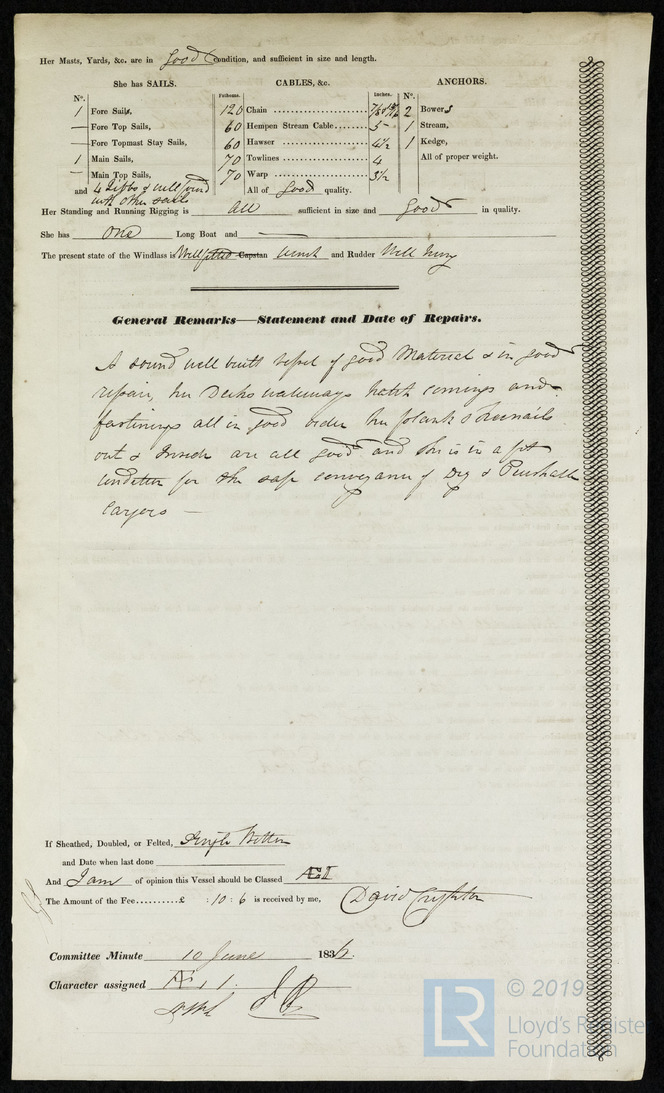 Her Masts, Yards, &c. are in good condition, and sufficient in size and length.
She has SAILS.
N°.
1 Fore Sails,
— Fore Top Sails,
— Fore Topmast Stay Sails,
1 Main Sails,
— Main Top Sails,
and 4 Jibbs & well found
with other sails
CABLES, &c.
Fathoms. Inches.
120 Chain
60 Hempen Stream Cable 5
60 Hawser 4½
70 Towlines 4
70 Warp 3½
All of good quality.
ANCHORS.
N°.
2 Bowers
1 Stream,
1 Kedge,
All of proper weight.
Her Standing and Running Rigging is all sufficient in size and good in quality.
She has one Long Boat and —
The present state of the Windlass is Well fitted Capstan winch and Rudder Well hung
General Remarks—Statement and Date of Repairs.
A sound well built vessel of good Material & in good
repair, her Decks waterways hatch comings and
fastinings all in good order her plank & treenails
out & Inside are all good and she is in a fit
condition for the safe conveyance of Dry & Perishable
Cargoes —
If Sheathed, Doubled, or Felted, Single Bottom
and Date when last done
And I am of opinion this Vessel should be Classed Æ I
The Amount of the Fee..........£ : 10 : 6 is received by me, David Crighton
Committee Minute 10 June 1836.
Character assigned Æ, 1.
© 2019
LR
Lloyd's Register
Foundation